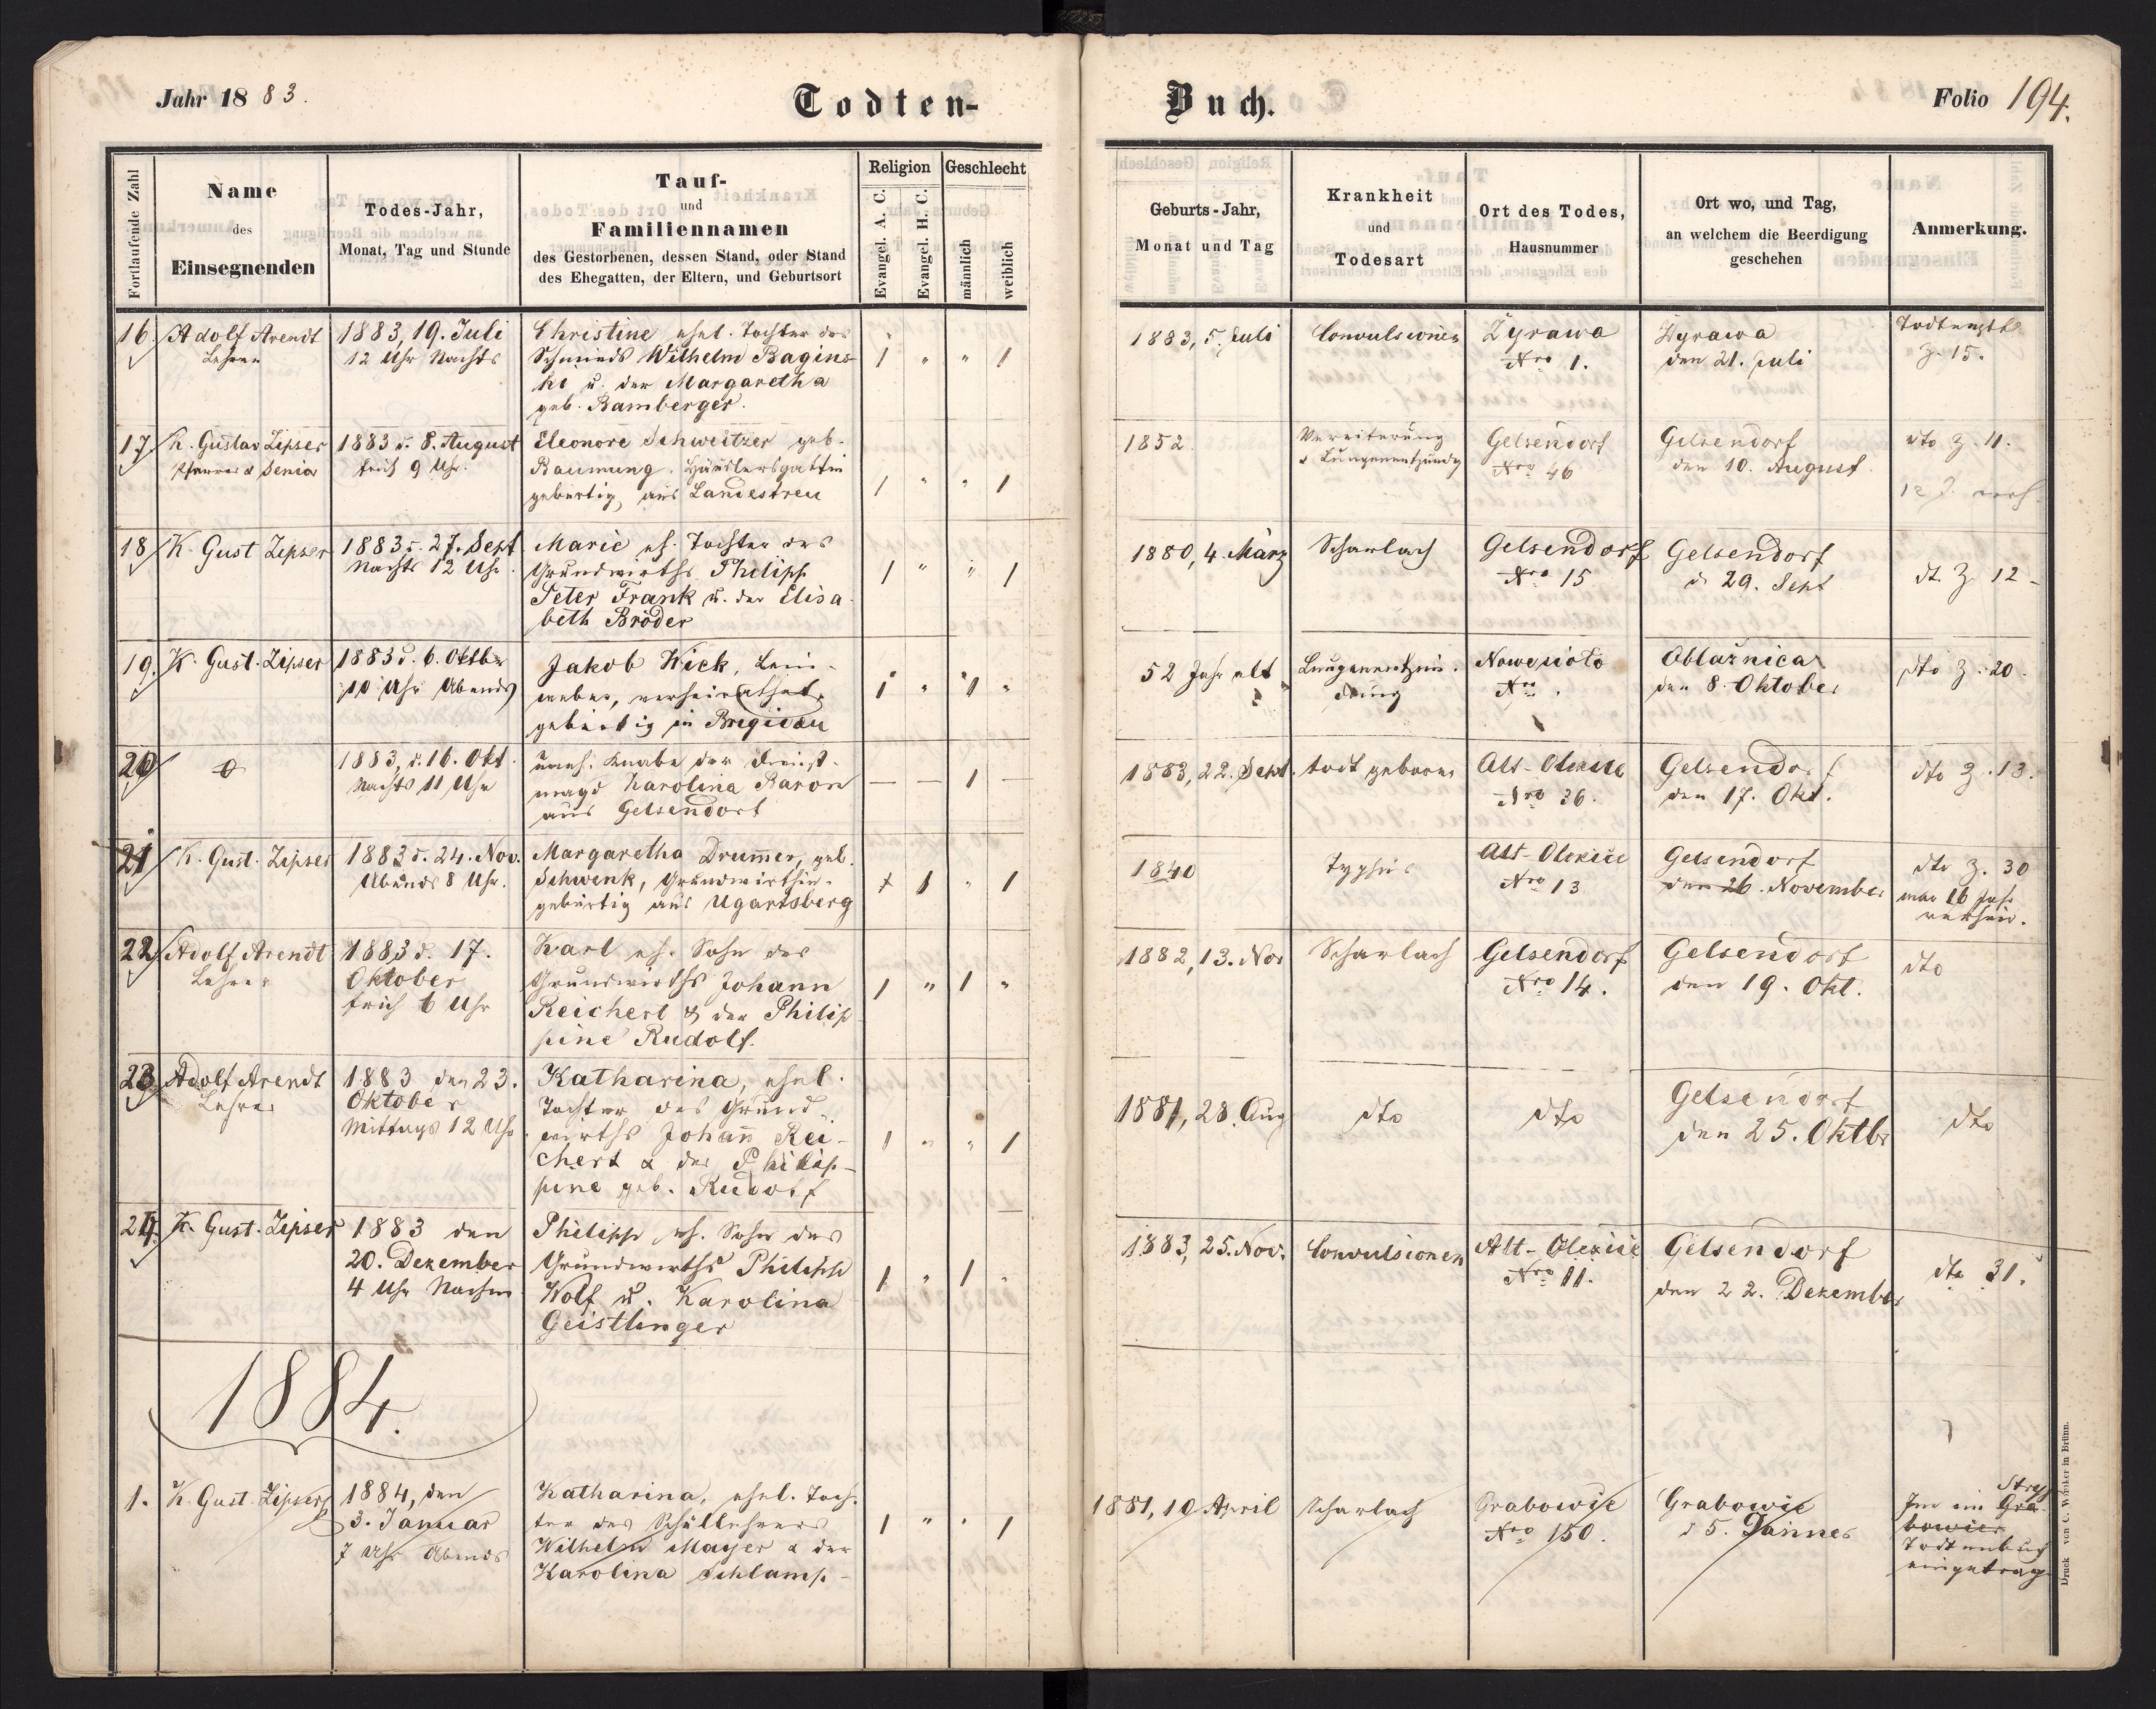 Jahr 1883.
Todten-
Buch.
Folio 194.
Fortlaufende Zahl
Name
des
Einsegnenden
Todes-Jahr,
Monat, Tag und Stunde
Tauf-
und
Familiennamen
des Gestorbenen, dessen Stand, oder Stand
des Ehegatten, der Eltern, und Geburtsort
Religion
Evangel. A. C.
Evangel. H. C.
Geschlecht
männlich
weiblich
Geburts-Jahr,
Monat und Tag
Krankheit
und
Todesart
Ort des Todes,
Hausnummer
Ort wo, und Tag,
an welchem die Beerdigung
geschehen
Anmerkung.
16.
Adolf Arendt
Lehrer
1883, 19. Juli
12 Uhr Nachts
Christine ehel. Tochter des
Schmieds Wilhelm Bagins-
ki u. der Margaretha
geb. Bamberger.
1 " " 1
1883, 5. Juli
Convulsionen
Zyrawa
Nro 1.
Zyrawa
den 21. Juli
Z. 15.
17.
K. Gustav Zipser
Pfarrer & Senior
1883 d. 8. August
früh 9 Uhr.
Eleonore Schweitzer geb.
Baumung. Häuslersgattin
gebürtig aus Landestreu
1 " " 1
1852.
Vereiterung
d. Lungenentzündg
Gelsendorf
Nro 46
Gelsendorf
den 10. August
dto Z. 11.
12 J. verh.
18
K. Gust Zipser
1883 d. 27. Sept
Nachts 12 Uhr.
Marie eh. Tochter des
Grundwirths Philipp
Peter Frank u. der Elisa-
beth Bröder
1 " " 1
1880, 4. März
Scharlach
Gelsendorf
Nro 15
Gelsendorf
d. 29. Sept
dt. Z. 12-
19.
K. Gust. Zipser
1883 d. 6. Oktber
10 Uhr Abends
Jakob Wick, Lein-
weber, verheirathet.
gebürtig in Brigidau
1 " 1 "
52 Jahr alt
Lungenentzün-
dung
Nro.
Oblažnica
den 8. Oktober
dto Z. 20.
20
1883, d. 16. Okt.
Nachts 11 Uhr
uneh. Knabe der Dienst-
magd Karolina Baron
aus Gelsendorf
— — 1 —
1883, 22. Sept.
todt geboren
Alt-Olexice
Nro 36.
Gelsendorf
den 17. Okt.
dto Z. 13.
21
K. Gust. Zipser
1883 d. 24. Nov.
Abends 8 Uhr.
Margaretha Drumer, geb.
Schwenk, Grundwirthin.
gebürtig aus Ugartsberg
1 " 1
1840
Typhus
Alt-Olexice
Nro 13
Gelsendorf
den 26. November
dto Z. 30
war 16 Jahr
verheir.
22
Adolf Arendt
Lehrer
1883 d. 17.
Oktober
früh 6 Uhr
Karl eh. Sohn des
Grundwirths Johann
Reichert & der Philip-
pine Rudolf.
1 " 1 "
1882, 13. Nov
Scharlach
Gelsendorf
Nro 14.
Gelsendorf
den 19. Okt.
dto
23
Adolf Arendt
Lehrer
1883 den 23.
Oktober
Mittags 12 Uhr
Katharina, ehel.
Tochter des Grund-
wirths Johann Rei-
chert & der Philip-
pine geb. Rudolf
1 " " 1
1881, 28. Aug
dto
dto
Gelsendorf
den 25. Oktbr
dto
24.
K. Gust. Zipser
1883 den
20. Dezember
4 Uhr Nachm
Philipp eh. Sohn des
Grundwirths Philipp
Wolf u. Karolina
Geistlinger
1 " 1 "
1883, 25. Nov.
Convulsionen
Alt-Olexice
Nro 11.
Gelsendorf
den 22. Dezember
dto 31.
1884.
1.
K. Gust. Zipser
1884, den
3. Januar
7 Uhr Abends
Katharina, ehel. Toch-
ter des Schullehrers
Wilhelm Mayer & der
Karolina Schlamp-
1 " " 1
1881, 10 April
Scharlach
Grabowie
Nro 150.
Grabowie
d 5. Jänner
Stryj
Gra-
bowier
Todtenbuch
eingetrag.
Druck von C. Winiker in Brünn.